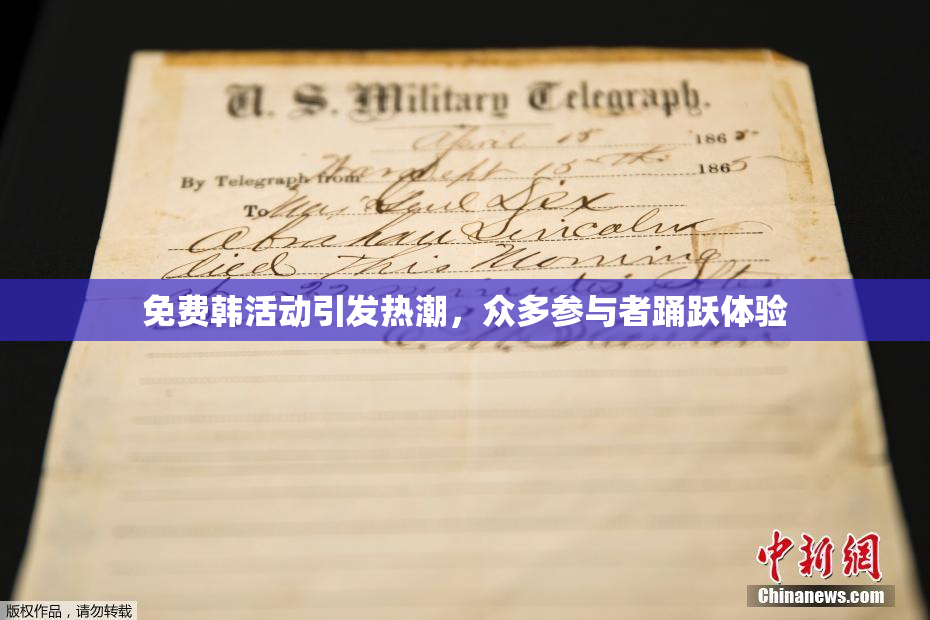 U. S. Military Telegraph.
April 15 1865
By Telegraph from War Dept 15th 1865
To Maj Genl Dix
Abraham Lincoln
died This Morning
at 22 minutes after
免费韩活动引发热潮，众多参与者踊跃体验
E. M. Stanton
中新网
Chinanews.com
版权作品，请勿转载